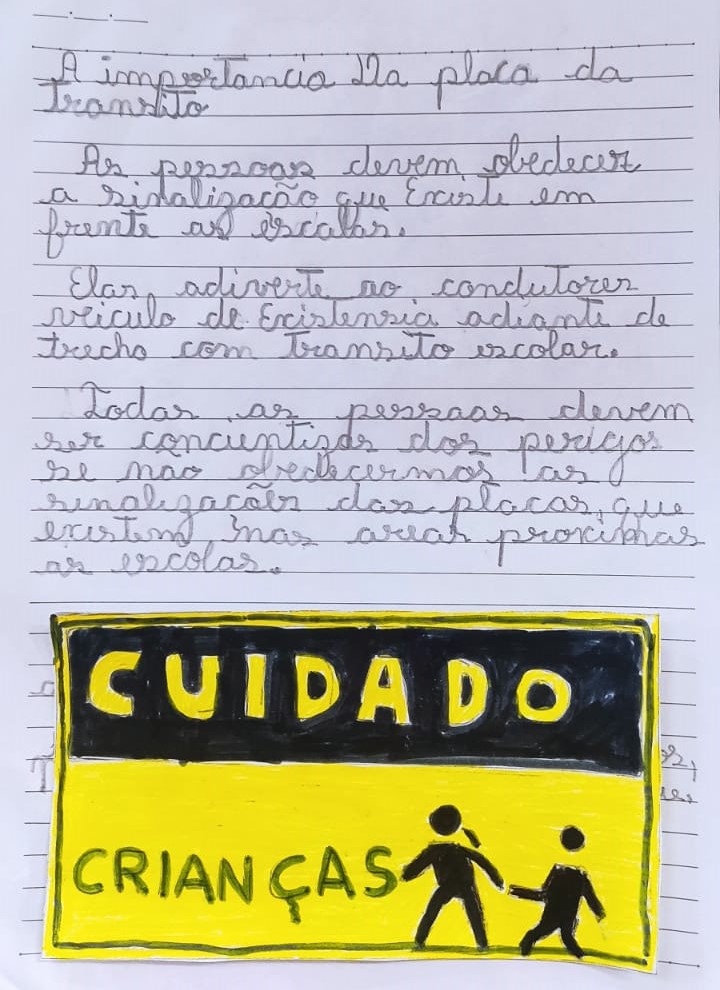 A importancia Na placa da
transito
As pessoas devem obedecer
a sinalização que Existe em
frente as escolas.
Elas adiverte ao condutores
veiculo de Existensia adiante de
trecho com transito escolar.
Todas as pessoas devem
ser concientizds dos perigos
se não obedecermos as
sinalizações das placas, que
existem nas areas proximas
as escolas.
CUIDADO
CRIANÇAS